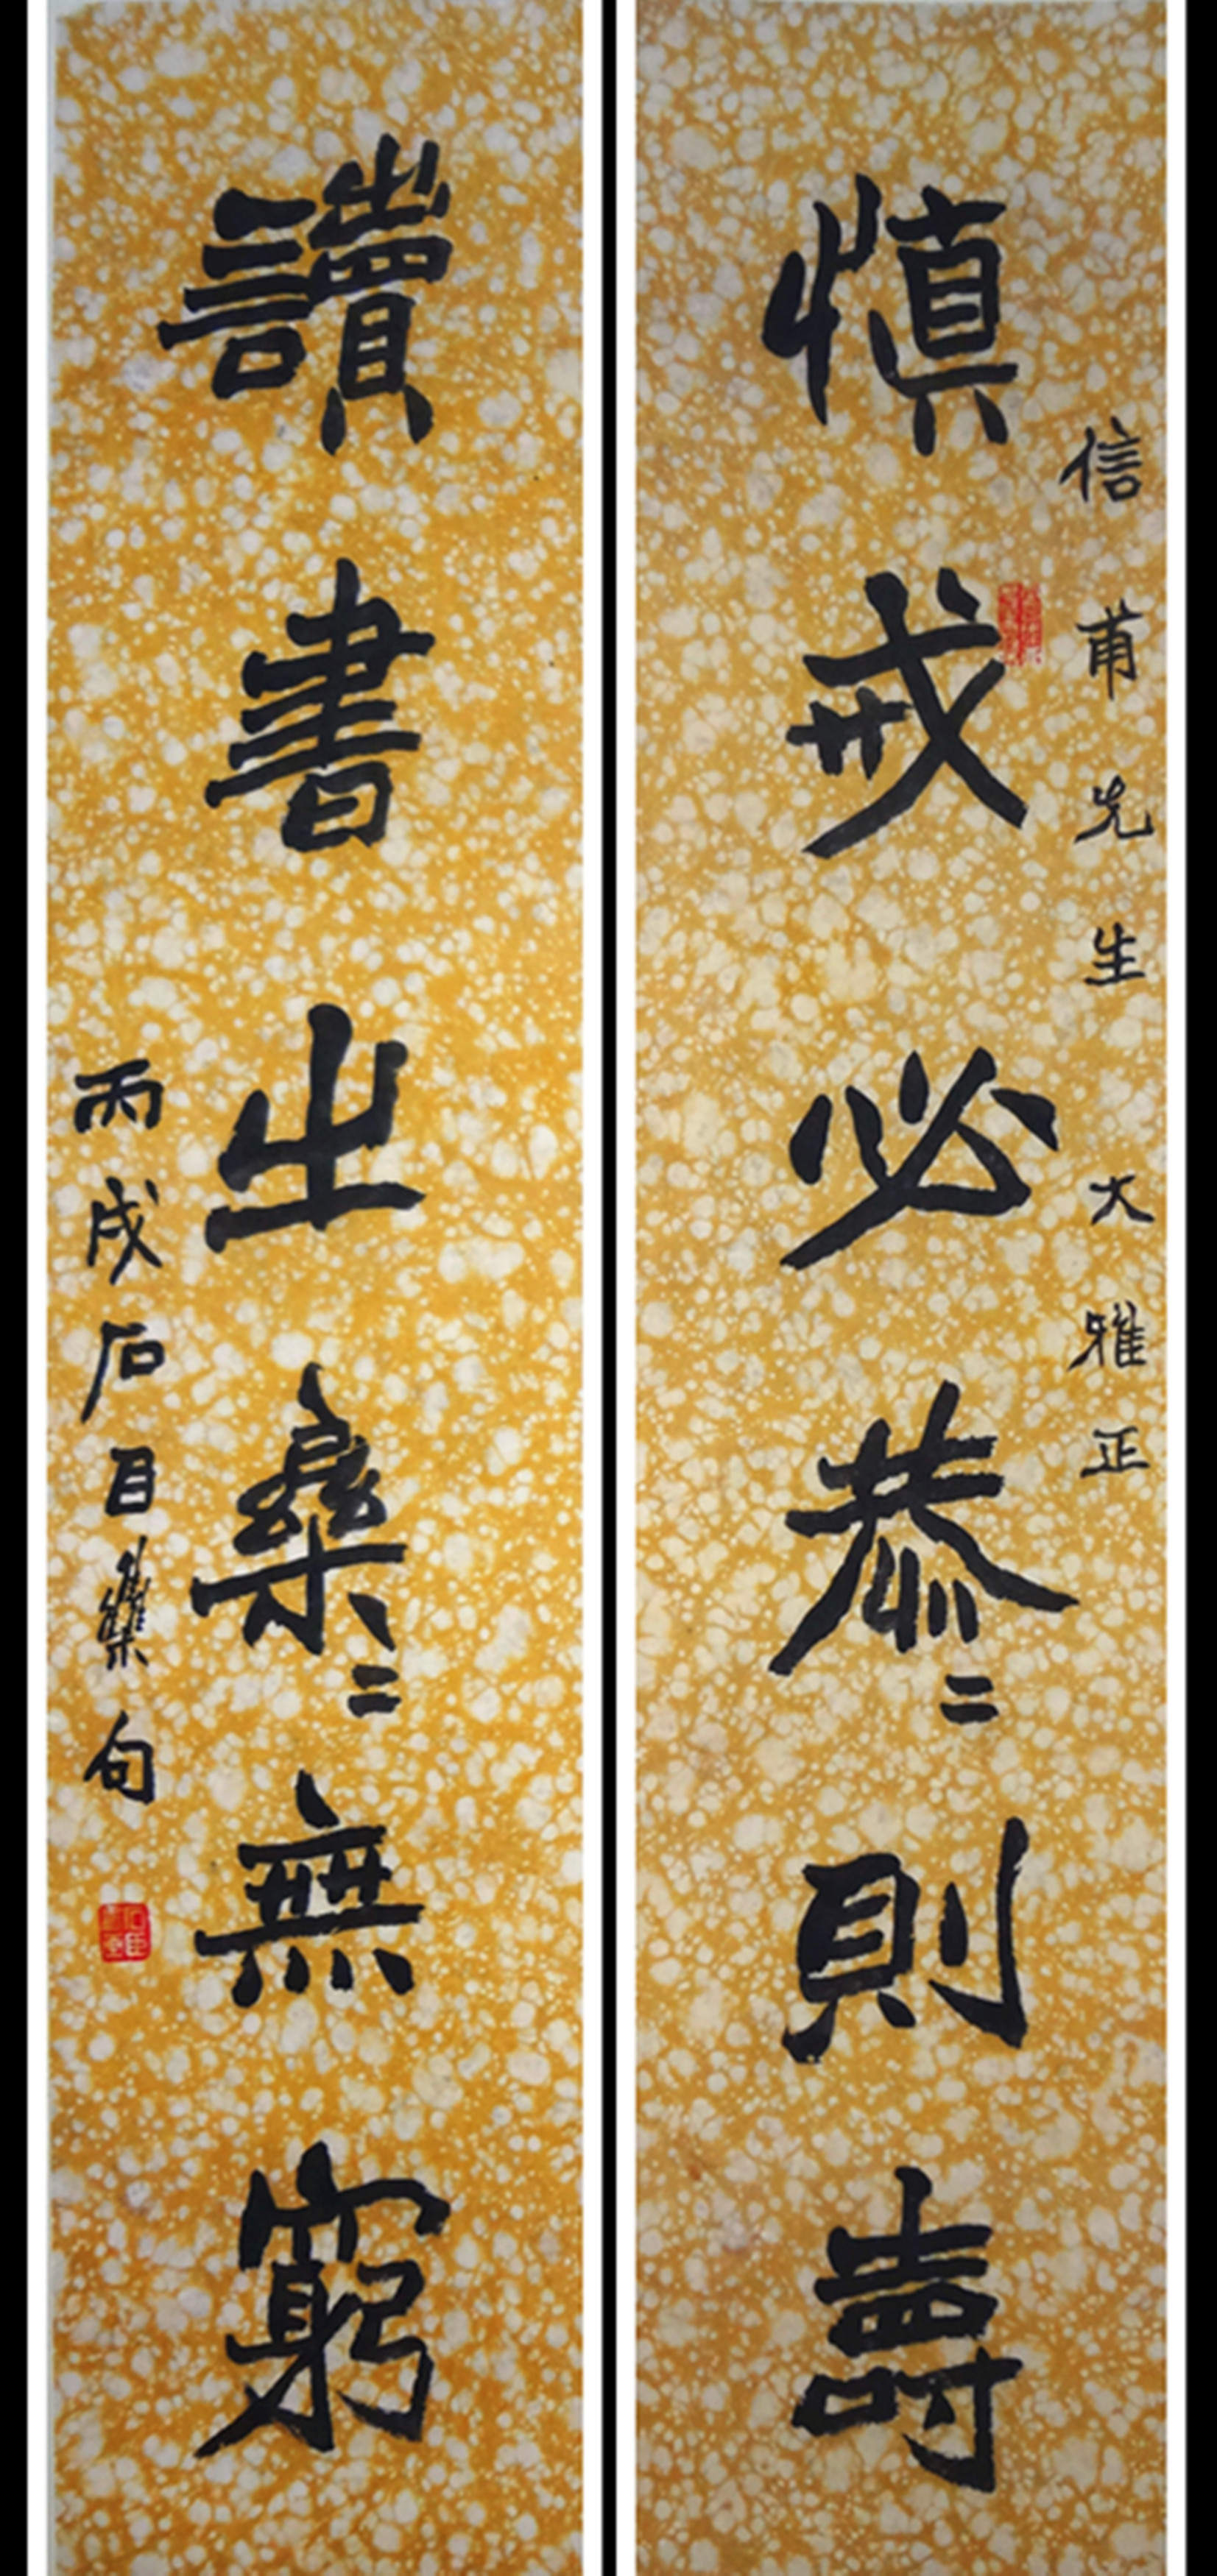 信甫先生大雅正
慎戒必恭〻則壽
讀書之樂〻無窮
丙戌石臣集句